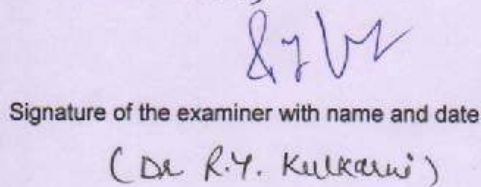 Signature of the examiner with name and date
(Dr R.Y. Kulkarni)